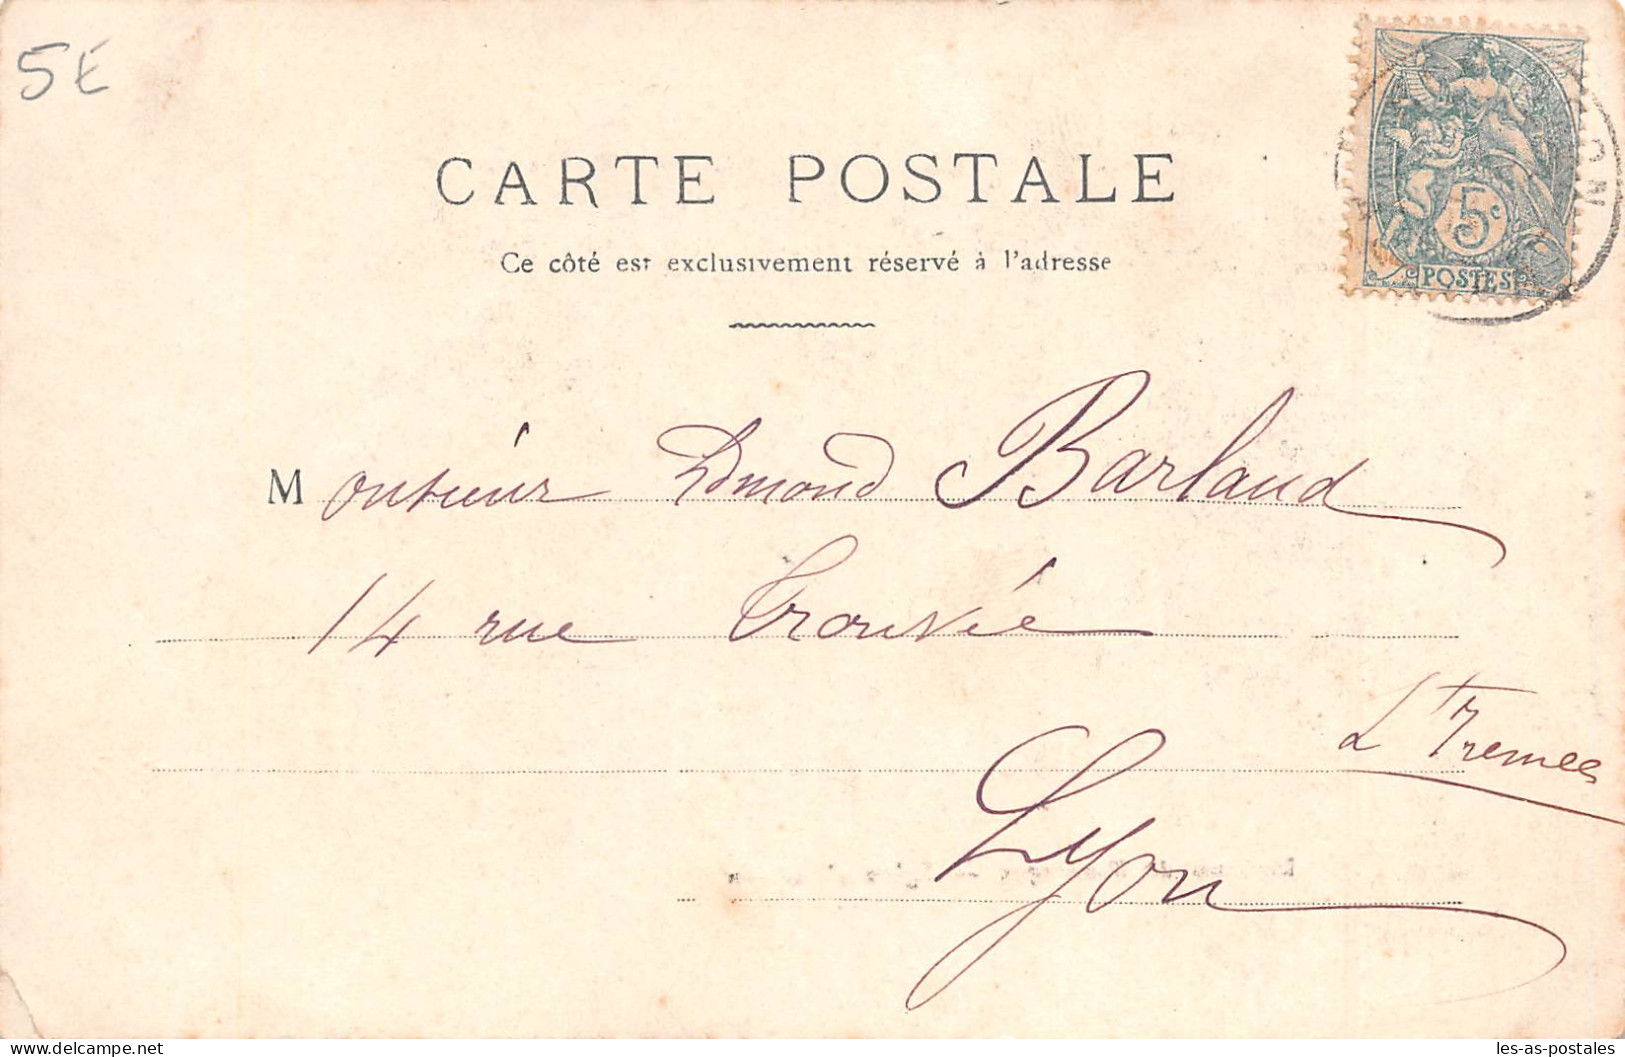 5€
CARTE POSTALE
Ce côté est exclusivement réservé à l'adresse
5c
POSTES
ON
Monsieur Edmond Barlaud
14 rue Trouvée
Lyon
les-as-postales
delcampe.net